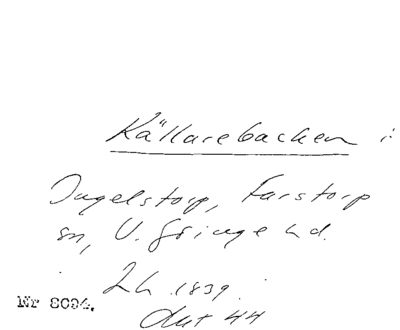 Källarebacken i
Ingelstorp, Farstorp
sn, V. Göinge hd.
Lh 1839.
Akt 44
Nr 8094.